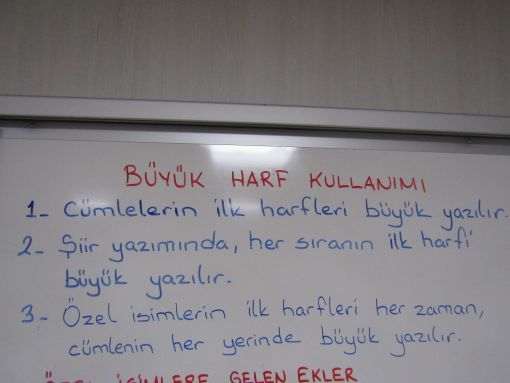 BÜYÜK HARF KULLANIMI
1- Cümlelerin ilk harfleri büyük yazılır.
2- Şiir yazımında, her sıranın ilk harfi
büyük yazılır.
3- Özel isimlerin ilk harfleri her zaman,
cümlenin her yerinde büyük yazılır.
ÖZEL İSİMLERE GELEN EKLER